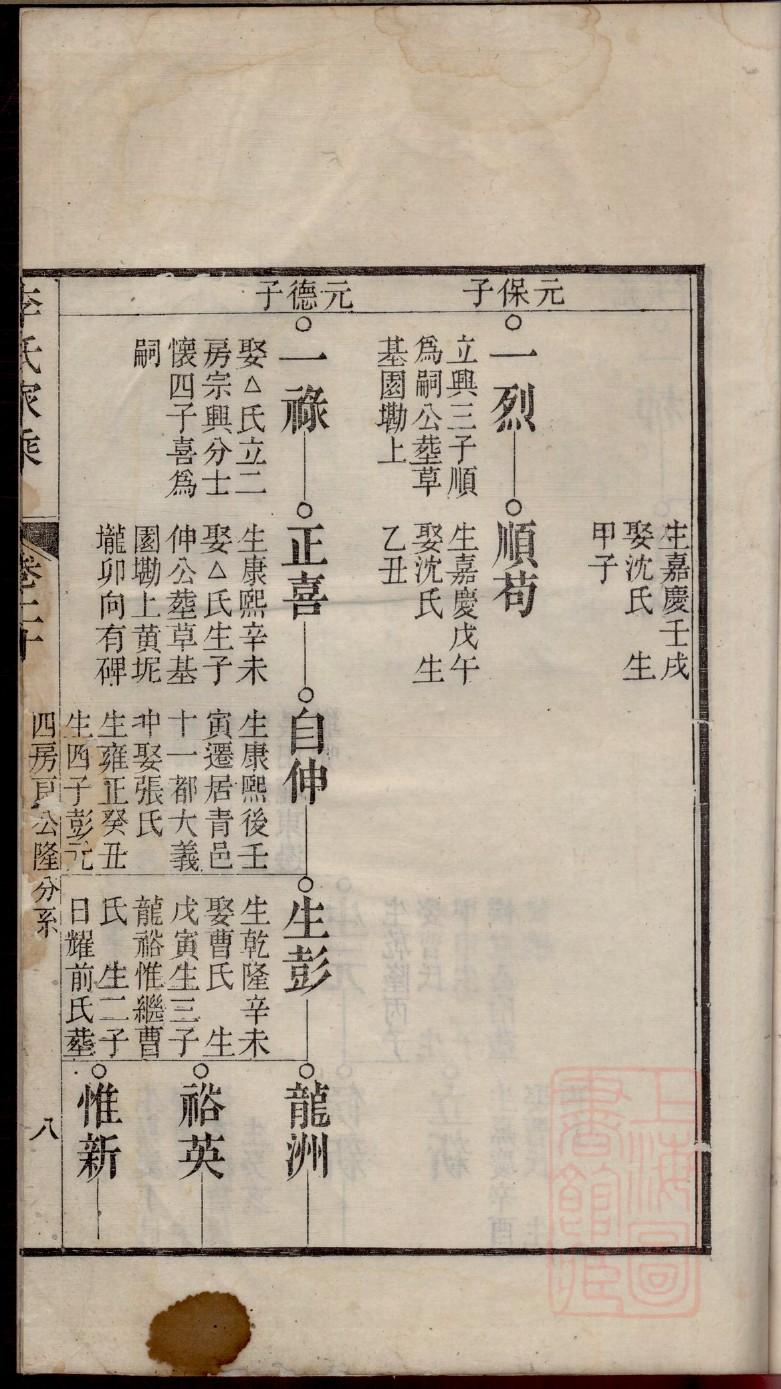 生嘉慶壬戌
娶沈氏　生
甲子
元保子
一烈
立興三子順
為嗣公塟草
基園墈上
順苟
生嘉慶戊午
娶沈氏　生
乙丑
元德子
一祿
娶△氏立二
房宗興分士
懷四子喜為
嗣
正喜
生康熙辛未
娶△氏生子
伸公塟草基
園墈上黄坭
壠卯向有碑
自伸
生康熙後壬
寅遷居青邑
十一都大義
冲娶張氏
生雍正癸丑
生四子彭元
生彭
生乾隆辛未
娶曹氏　生
戊寅生三子
龍裕惟繼曹
氏　生二子
日耀前氏塟
龍洲
裕英
惟新
李氏家乘
卷二十
四房　公隆分系
八
上海圖書館藏